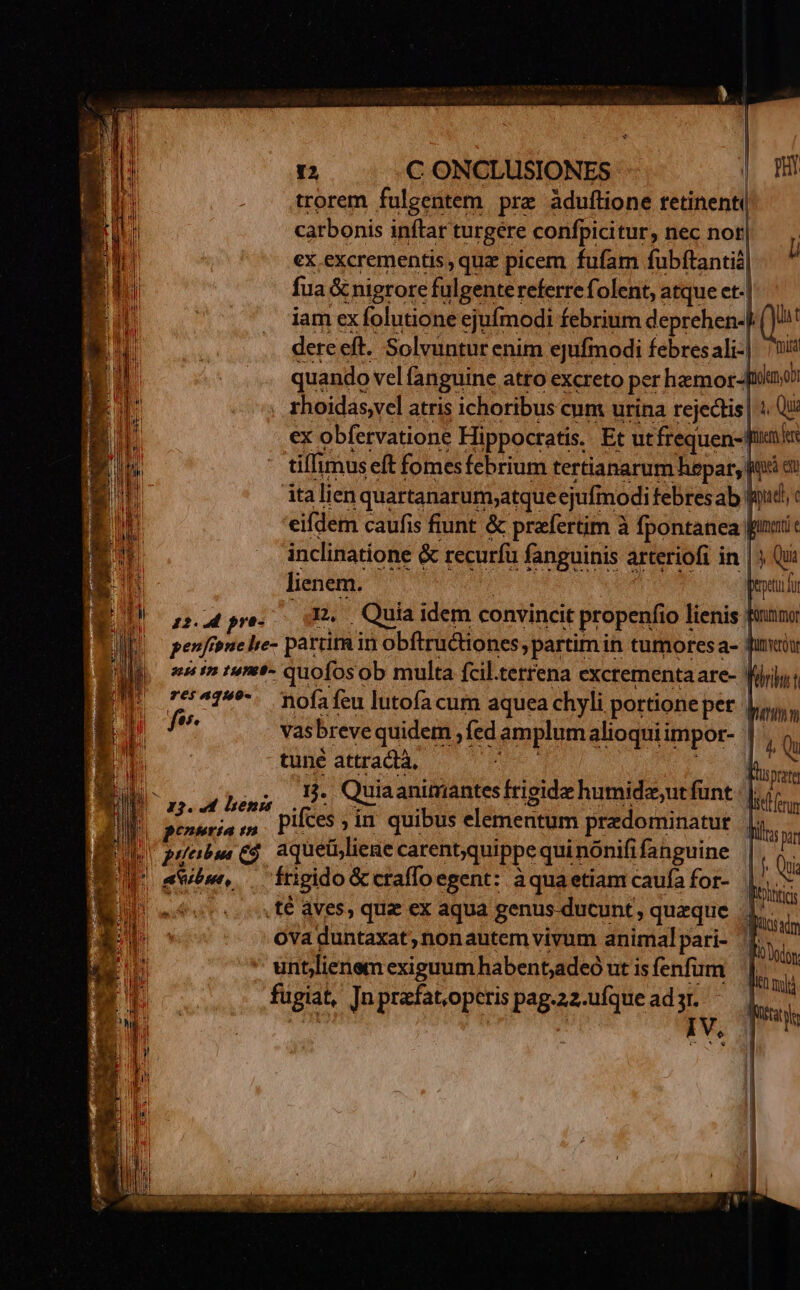 12 CONCLUSIONES
trorem fulgentem præ aduſtione retinenti
carbonis inſtar turgere conſpicitur, nec non
ex excrementis, quæ picem fuſam ſubſtantiâ
ſua & nigrore fulgente referre ſolent, atque et-
iam ex ſolutione ejuſmodi febrium deprehen-
dere eſt. Solvuntur enim ejuſmodi febres ali-
quando vel ſanguine atro excreto per hæmor-
rhoidas, vel atris ichoribus cum urina rejectis
ex obſervatione Hippocratis. Et ut frequen-
tiſſimus eſt fomes febrium tertianarum hepar,
ita lien quartanarum, atque ejuſmodi febres ab
eiſdem cauſis fiunt & præſertim à ſpontanea
inclinatione & recurſu ſanguinis arterioſi in
lienem.
12. A pro-
penſione lie-
nis in tumo-
res aquo-
ſos.
12. Quia idem convincit propenſio lienis
partim in obſtructiones, partim in tumores a-
quoſos ob multa ſcil. terrena excrementa are-
noſa ſeu lutoſa cum aquea chyli portione per
vas breve quidem, ſed amplum alioqui impor-
tunè attractâ.
13. A lienis
penuria in
piſcibus &
avibus.
13. Quia animantes frigidæ humidæ, ut ſunt
piſces, in quibus elementum prædominatur
aqueû, liene carent, quippe qui nōniſi ſanguine
frigido & craſſo egent: à qua etiam cauſa for-
té aves, quæ ex aqua genus ducunt, quæque
ova duntaxat, non autem vivum animal pari-
unt, lienem exiguum habent, adeò ut is ſenſum
fugiat, In præfat. operis pag. 22. uſque ad 31.
IV.